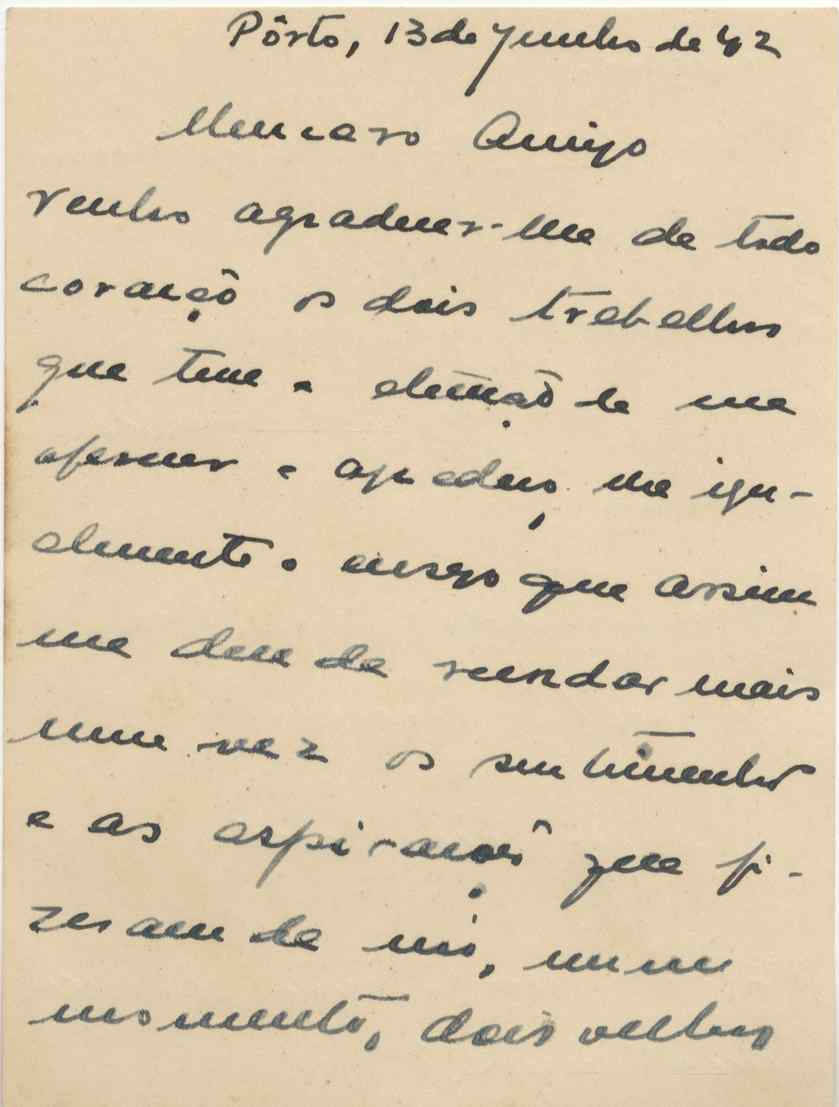 Pôrto, 13 de Junho de 42
Meu caro Amigo
venho agradecer-lhe de todo
coração os dois trabalhos
que teve a atenção de me
oferecer e agradeço-lhe igu-
almente o ensejo que assim
me deu de recordar mais
uma vez os sentimentos
e as aspirações que fi-
zeram de nós, num
momento, dois velhos